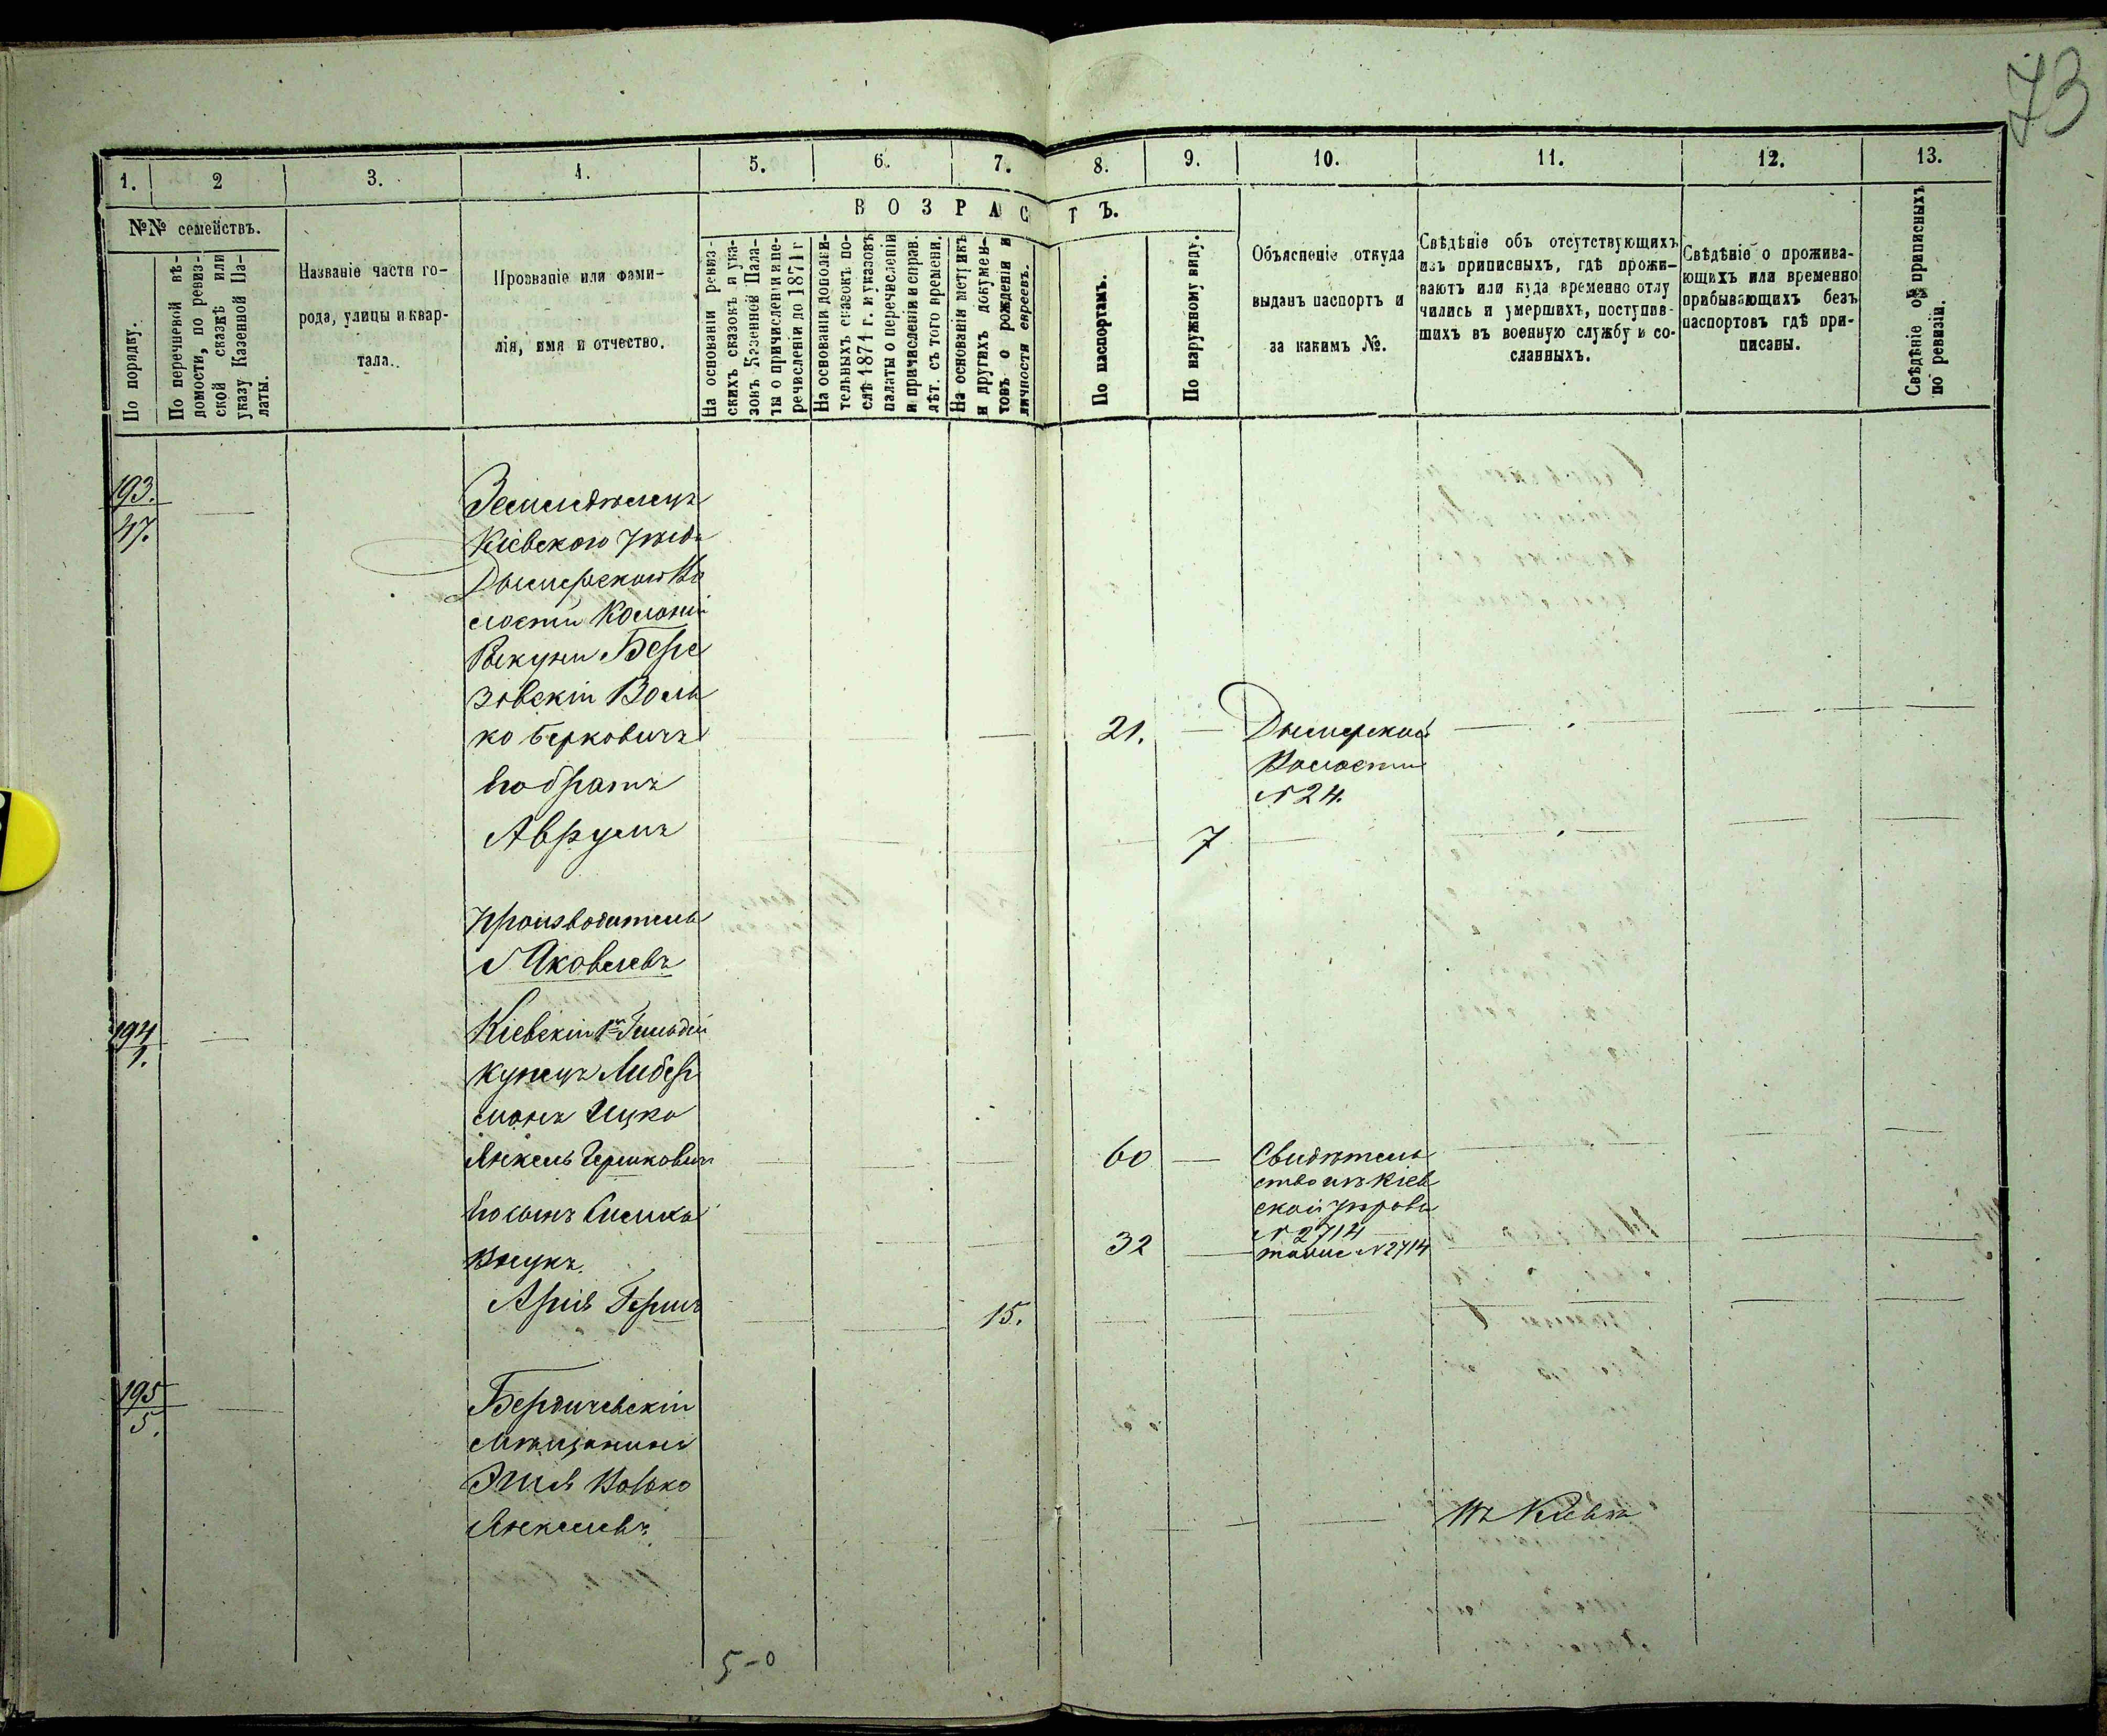 73
1. 2 3. 4. 5. 6. 7. 8. 9. 10. 11. 12. 13.
ВОЗРАСТЪ.
№№ семействъ.
По порядку.
По перечневой вѣ-
домости, по ревиз-
ской сказкѣ или
указу Казенной Па-
латы.
Названіе части го-
рода, улицы и квар-
тала.
Прозваніе или фами-
лія, имя и отчество.
На основаніи ревиз-
скихъ сказокъ и ука-
зовъ Казенной Пала-
ты о причисленіи и пе-
речисленіи до 1871 г
На основаніи дополни-
тельныхъ сказокъ по-
слѣ 1871 г. и указовъ
палаты о перечисленіи
и причисленіи и справ.
лѣт. съ того времени.
На основаніи метрикъ
и другихъ докумен-
товъ о рожденіи и
личности евреевъ.
По паспортамъ.
По наружному виду.
Объясненіе откуда
выданъ паспортъ и
за какимъ №.
Свѣдѣніе объ отсутствующихъ
изъ приписныхъ, гдѣ прожи-
ваютъ или куда временно отлу
чились и умершихъ, поступив-
шихъ въ военную службу и со-
сланныхъ.
Свѣдѣніе о прожива-
ющихъ или временно
прибывающихъ безъ
паспортовъ гдѣ при-
писаны.
Свѣдѣніе о приписныхъ
по ревизіи.
193.
47.
Земледѣлецъ
Кіевского уѣзда
Дымерской Во
лости Колоніи
Рыкуни Бере
зовскій Воль
ко Берковичъ
21.
Дымерской
Волости
№ 24.
Его братъ
Аврумъ
7
Производитель
Яковлевъ
194
1.
Кіевскій 1й Гильдіи
купецъ Либер
манъ Ицко
Янкель Гершковичъ
60
Свидѣтель
ство изъ Кіев
ской управы
№ 2714
Его сынъ Симха
32
тоже № 2714
Внукъ.
Арія Гершъ
15.
195
5.
Бердичевскій
мѣщанинъ
Вовко
Янкелевъ
Въ Кіевѣ
5-0